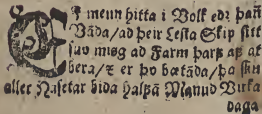 Ef menn hitta i Volk edr þañ
Váda/ad þeir lesta Skip sitt
suo miøg ad Farm þarf af at
bera/z er þo bætáda/þa sku
aller Hásetar bida halfan Manud Virka
daga